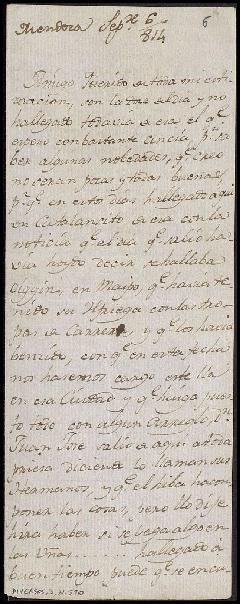 Mendoza Sep.e 6
814
6
Amigo querido de toda mi esti-
macion, con la tase al dia y no
ha llegado todavia a esa el q.e
espero con bastante ancia, p.a sa-
ber algunas novedades, q.e creo
no seran pocas y todas buenas
p.r q.e en estos dias ha llegado aqui
un Catalancito de esa con la
noticia q.e el dia q.e salio ha-
via hoydo decir se hallaba
Oiggin, en Maipo, q.e havia te-
nido su refriega con las tro-
pas de Carrera, y q.e los havia
batido, con q.e en esta fecha
nos hasemos cargo este lla
en esa Ciudad y q.e haiga puer-
to todo con algun arreglo, D.n
Juan José salio de aqui a toda
priesa diciendo lo llaman sus
Hermanos, y q.e el hiba ha com-
poner las cosas, pero llo dije
hira haber si se pega algo en
las Uñas ..... ha llegado á
buen tiempo puede q.e se encu-
DIVERSOS,